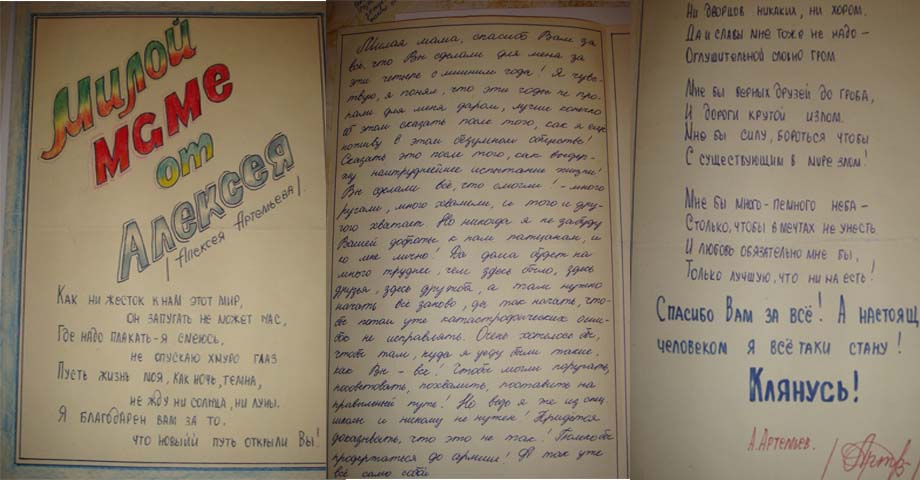 Милой
маме
от
Алексея
/Алексея Артемьева/.
Как ни жесток к нам этот мир,
он запугать не может нас,
Где надо плакать-я смеюсь,
не опускаю хмуро глаз
Пусть жизнь моя, как ночь, темна,
не жду ни солнца, ни луны.
Я благодарен вам за то,
что новый путь открыли Вы!
Милая мама, спасибо Вам за
всё, что Вы сделали для меня за
эти четыре с лишним года! Я чувс-
твую, я понял, что эти годы не про-
пали для меня даром, лучше конечно
об этом сказать после того, как я ещё
поживу в этом безумном обществе!
Сказать это после того, как
наитруднейшие испытание жизни!
Вы сделали всё, что смогли! - много
ругали, много хвалили, и того и дру-
гого хватает. Но никогда я не забуду
Вашей доброты к нам пацанам, и
ко мне лично! Да дома будет на
много труднее, чем здесь было, здесь
друзья, здесь дружба, а там нужно
начать всё заново, да так начать, что-
бы потом уже катастрофических оши-
бок не исправлять. Очень хотелось бы,
чтобы там, куда я уеду были такие,
как Вы - все! Чтобы могли поругать,
посоветовать, похвалить, поставить на
правильный путь! Но ведь я же из спец.
школы и никому не нужен! Придётся
доказывать, что это не так! Только бы
продержаться до армии! А там уже
всё само собой
Ни дворцов никаких, ни хором.
Да и славы мне тоже не надо -
Оглушительной словно гром
Мне бы верных друзей до гроба,
И дороги крутой излом.
Мне бы силу, бороться чтобы
С существующим в мире злом!
Мне бы много-немного неба -
Столько, чтобы в мечтах не унесть
И любовь обязательно мне бы,
Только лучшую, что ни на есть!
Спасибо Вам за всё! А настоящ
человеком я всё таки стану!
Клянусь!
А.Артемьев.